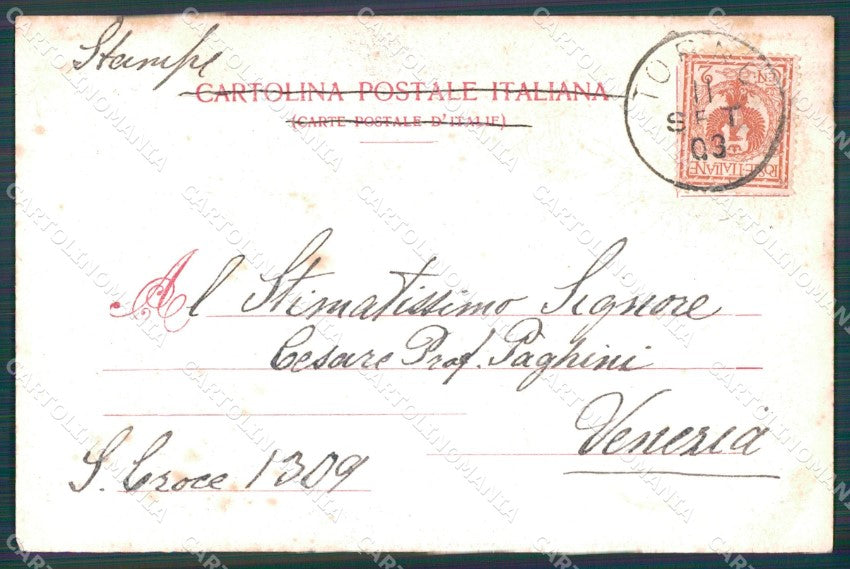 Stampe
CARTOLINA POSTALE ITALIANA
(CARTE POSTALE D'ITALIE)
11
SET
03
POSTE ITALIANE
Al Stimatissimo Signore
Cesare Prof. Paghini
Venezia
S. Croce 1309
CARTOLINOMANIA